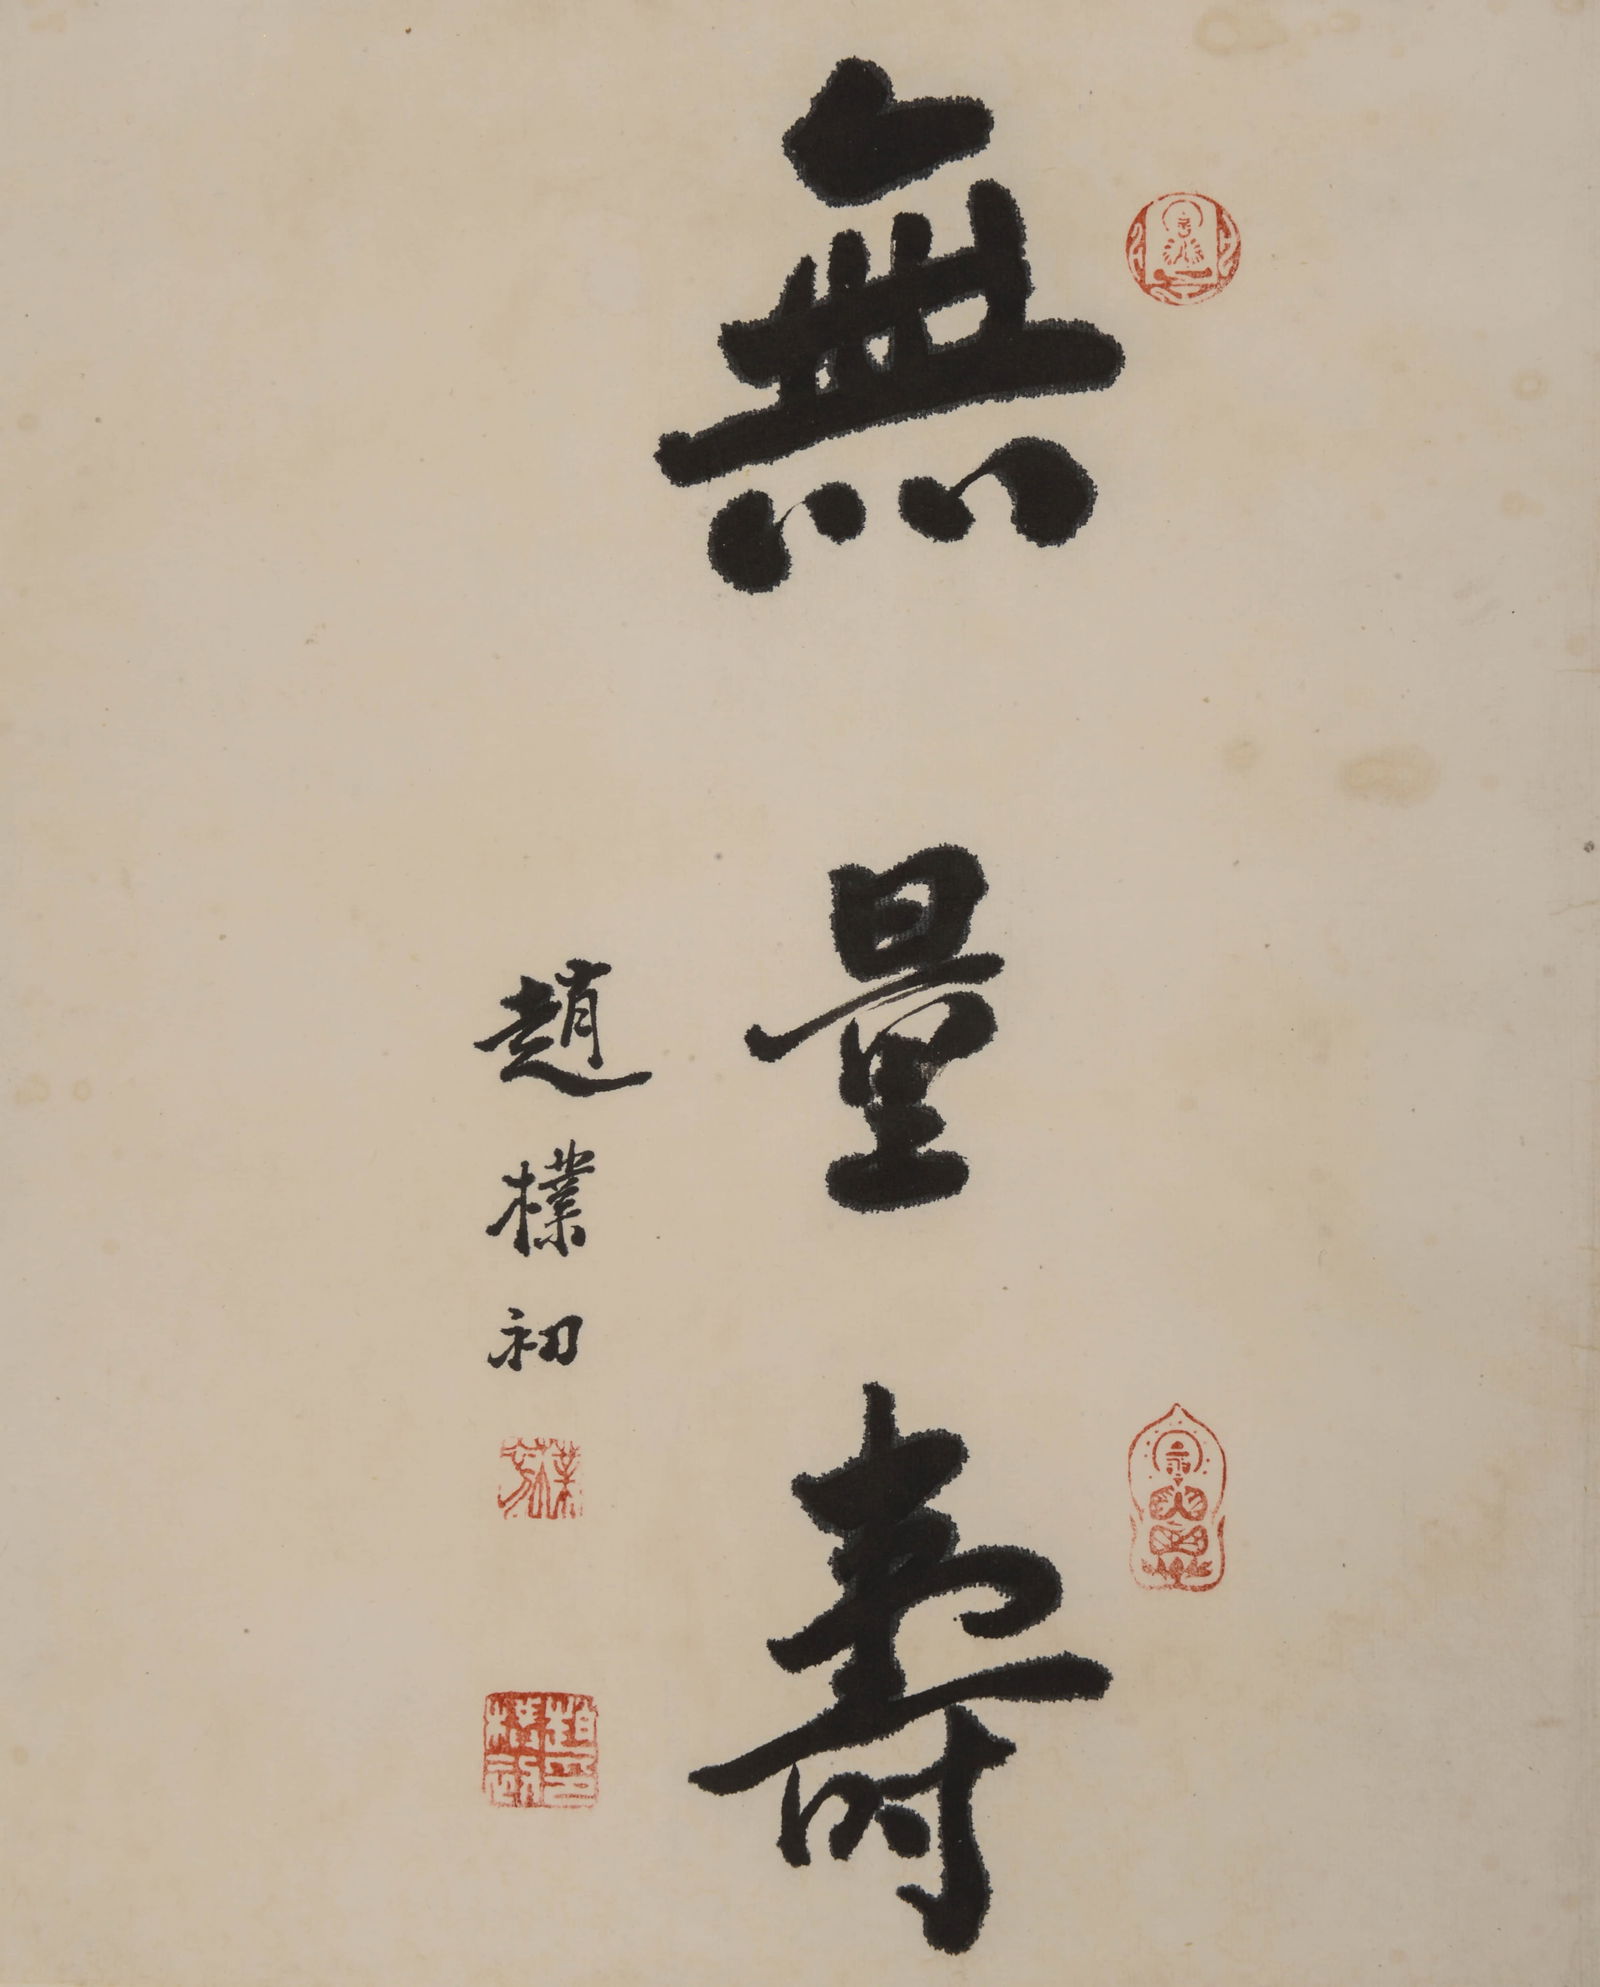 無量壽
趙樸初
趙樸初印